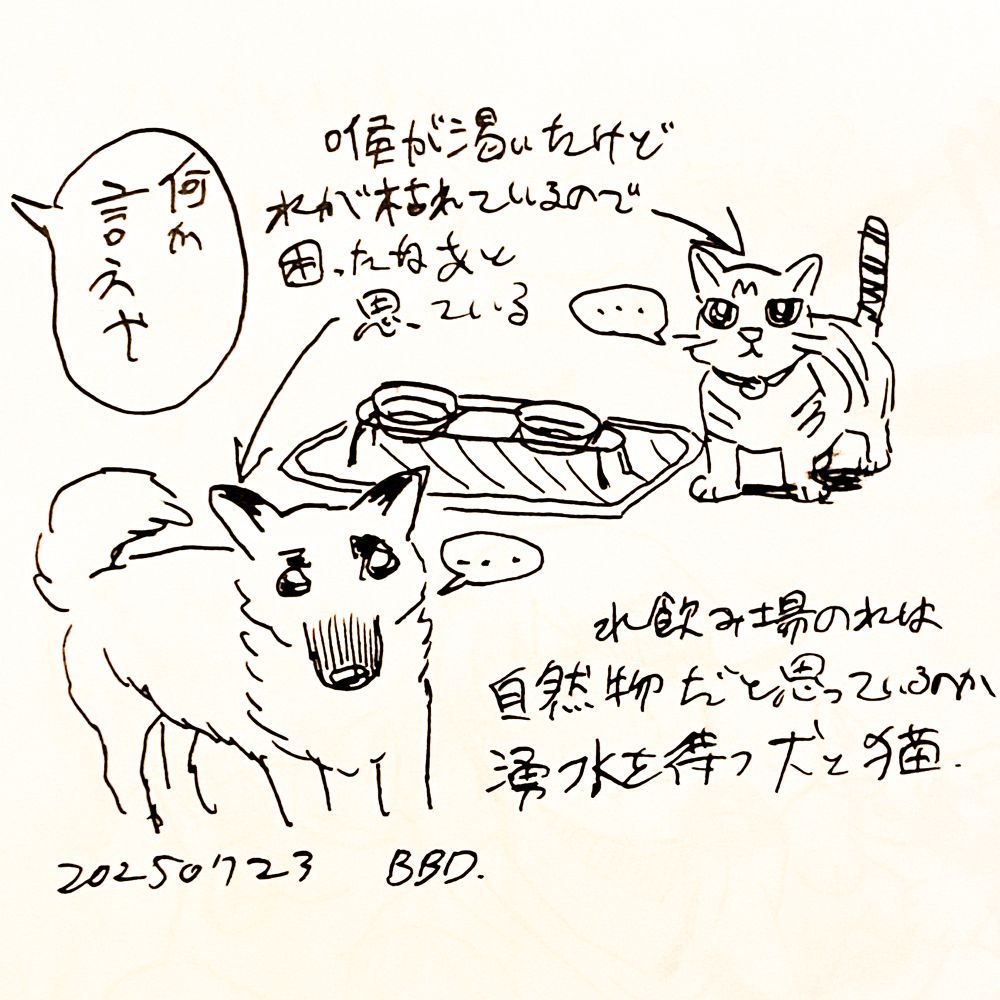 喉が渇いたけど
水が枯れているので
困ったなあと
思っている
何か
言えや
...
...
水飲み場の水は
自然物だと思っているのか
湧水を待つ犬と猫.
20250723 BBD.